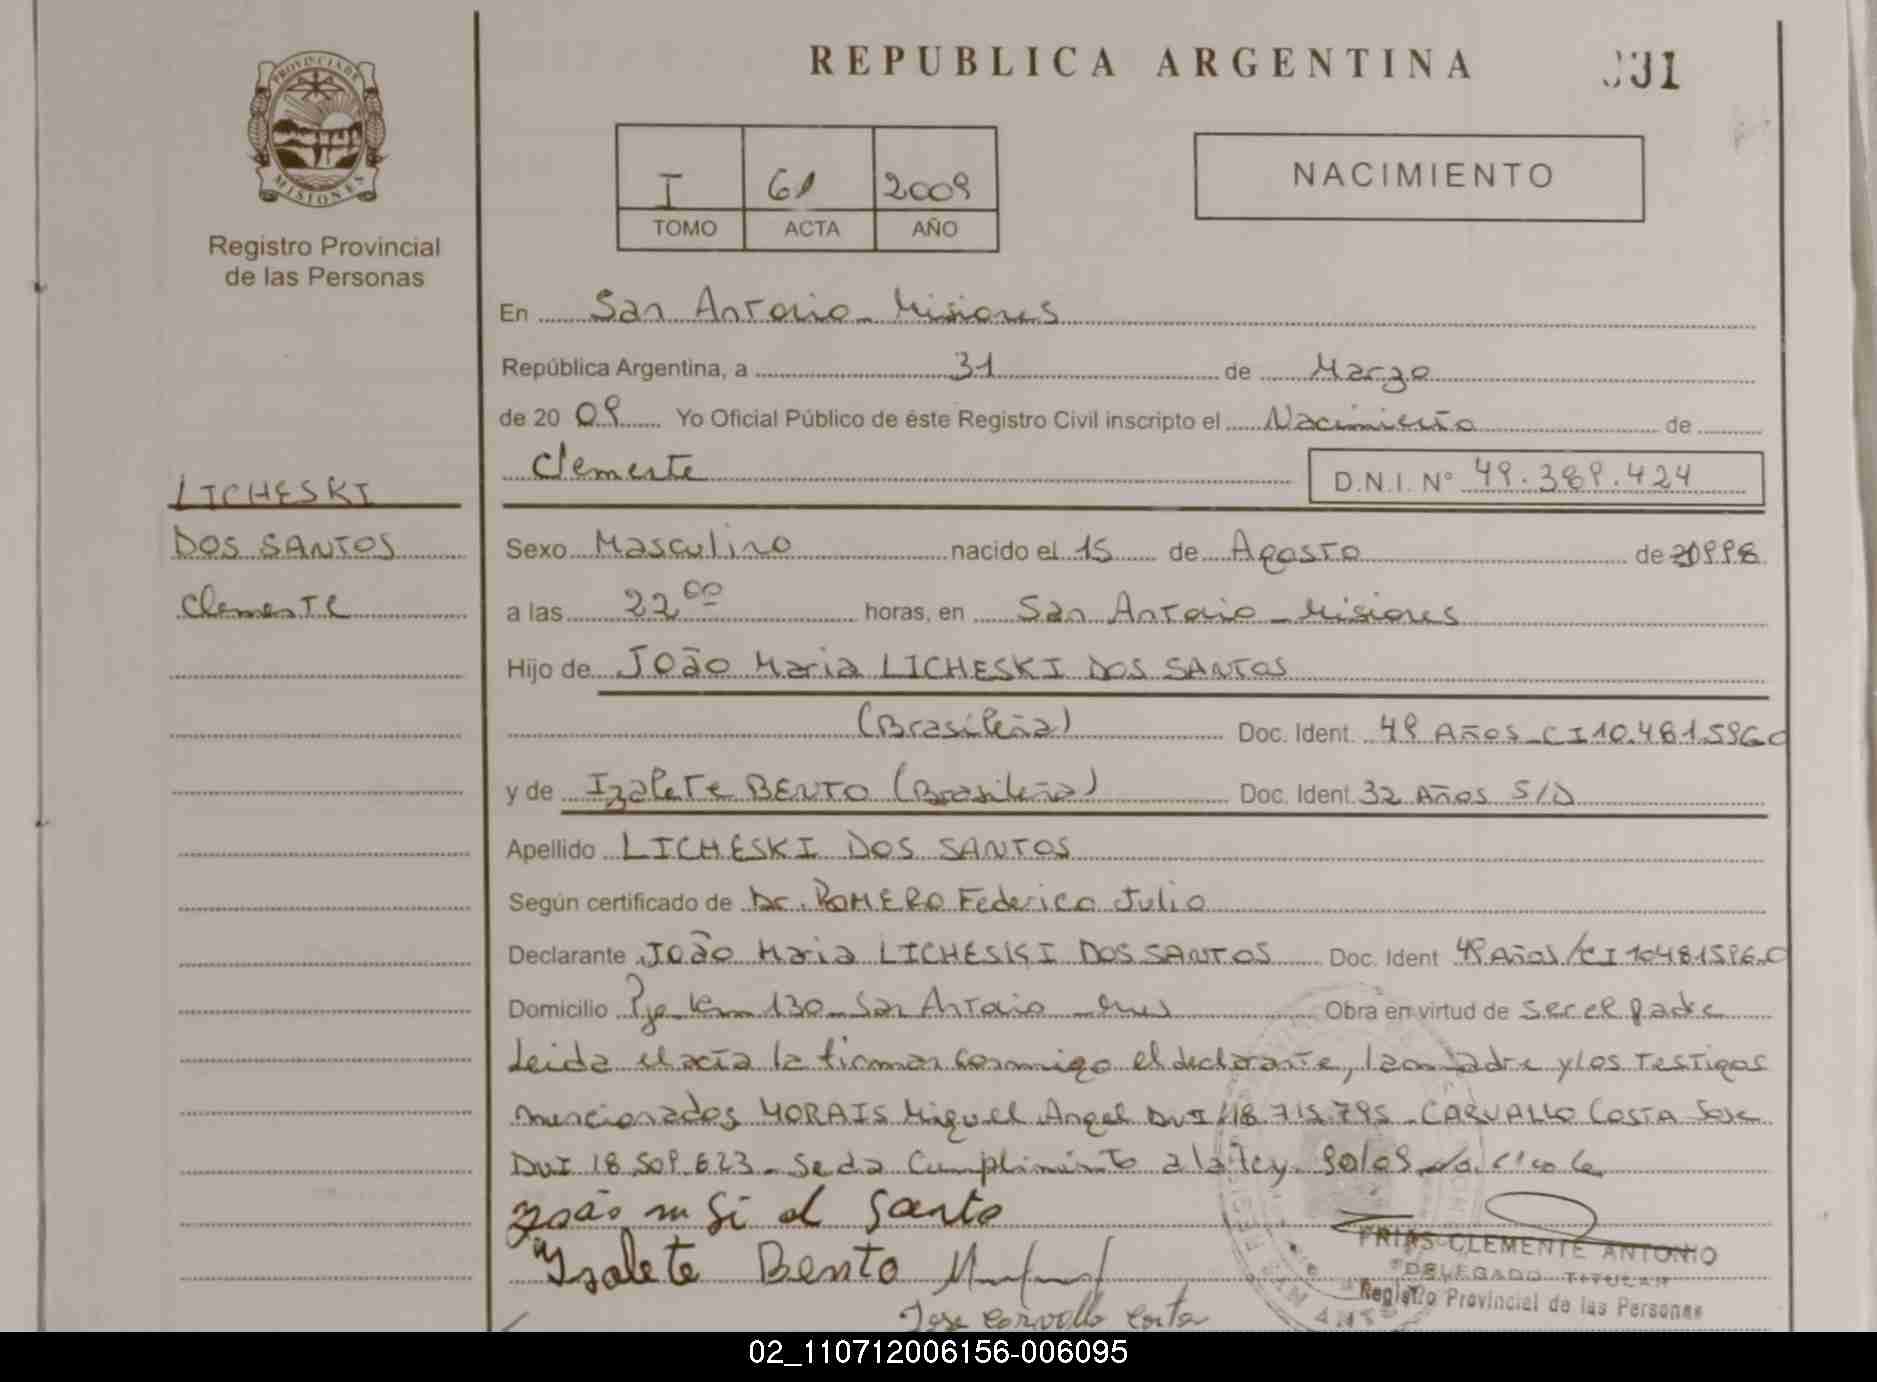 REPUBLICA ARGENTINA
331
PROVINCIA DE
MISIONES
Registro Provincial
de las Personas
I 61 2009
TOMO ACTA AÑO
NACIMIENTO
En San Antonio - Misiones
República Argentina, a 31 de Marzo
de 20 09 Yo Oficial Público de éste Registro Civil inscripto el Nacimiento de
Clemente D.N.I. N° 49.389.424
LICHESKI
DOS SANTOS
Clemente
Sexo Masculino nacido el 15 de Agosto de 1998
a las 22 00 horas, en San Antonio - Misiones
Hijo de João Maria LICHESKI DOS SANTOS
(Brasileña) Doc. Ident. 49 Años - CI 10.481.596.0
y de Izalete BENTO (Brasileña) Doc. Ident. 32 Años S/D
Apellido LICHESKI DOS SANTOS
Según certificado de Dr. ROMERO Federico Julio
Declarante João Maria LICHESKI DOS SANTOS Doc. Ident 49 Años/CI 10481596.0
Domicilio Pje Km 130 - San Antonio - Mnes Obra en virtud de ser el padre
Leida el acta la firman conmigo el declarante, la madre y los testigos
mencionados MORAIS Miguel Angel DNI 18.715.795 - CARVALLO COSTA Jose
DNI 18.509.623 - Se da Cumplimiento a la ley
João m Si d Santo
Izalete Bento
Jose Carvallo Costa
FRIAS CLEMENTE ANTONIO
DELEGADO TITULAR
Registro Provincial de las Personas
02_110712006156-006095